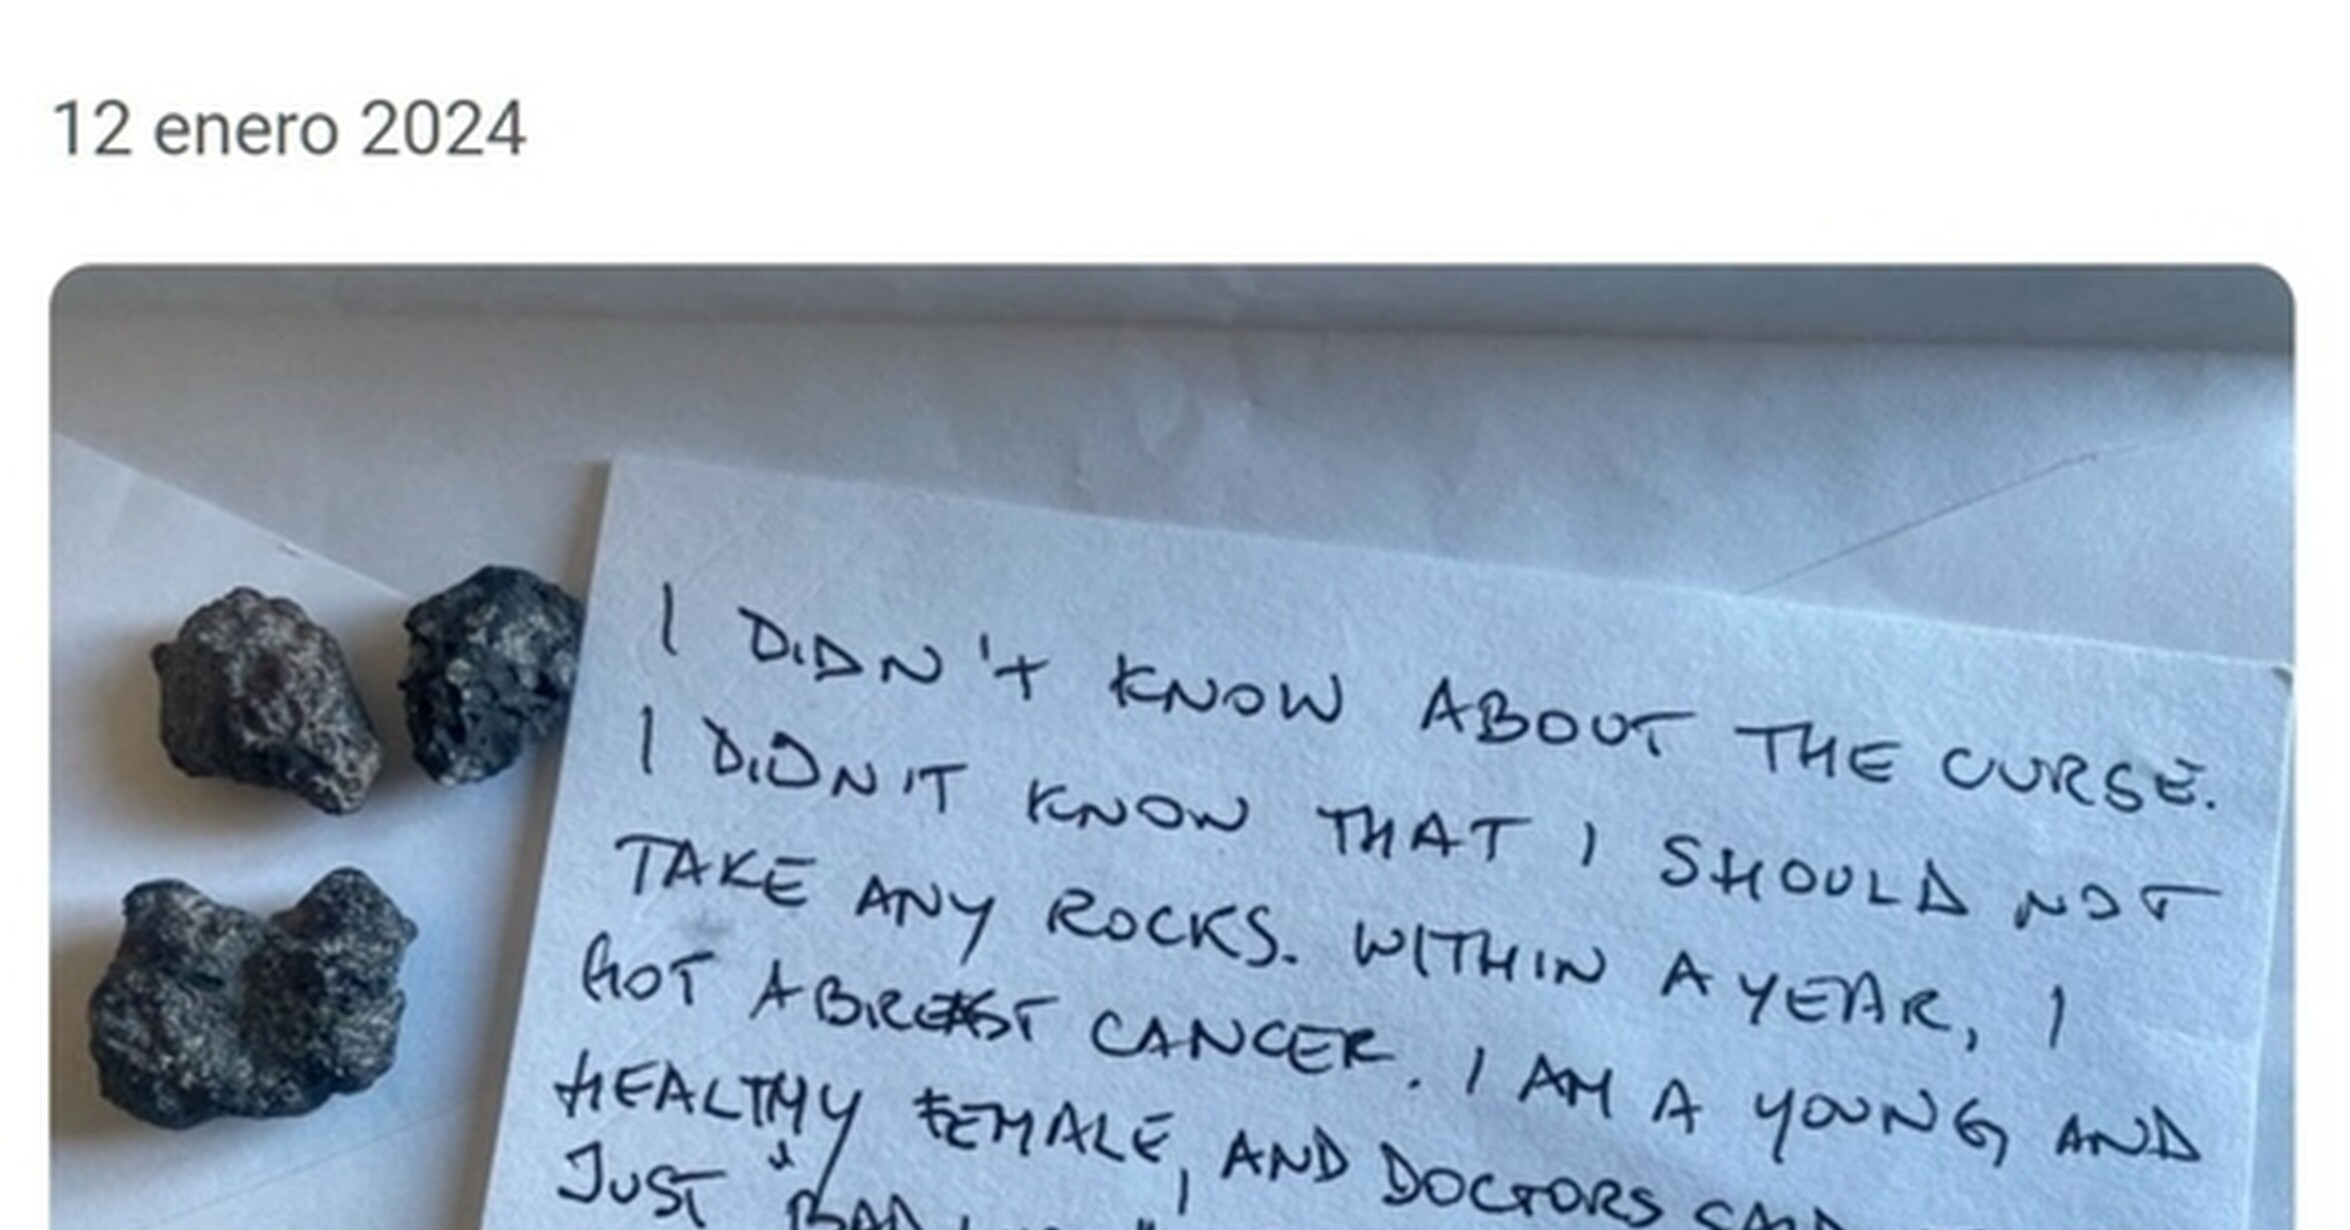 12 enero 2024
I DIDN'T KNOW ABOUT THE CURSE.
I DIDN'T KNOW THAT I SHOULD NOT
TAKE ANY ROCKS. WITHIN A YEAR, I
GOT A BREAST CANCER. I AM A YOUNG AND
HEALTHY FEMALE, AND DOCTORS SAID
JUST "BAD